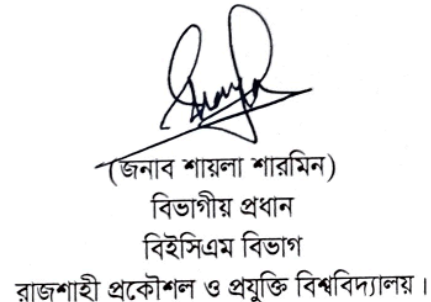 (জনাব শায়লা শারমিন)
বিভাগীয় প্রধান
বিইসিএম বিভাগ
রাজশাহী প্রকৌশল ও প্রযুক্তি বিশ্ববিদ্যালয়।